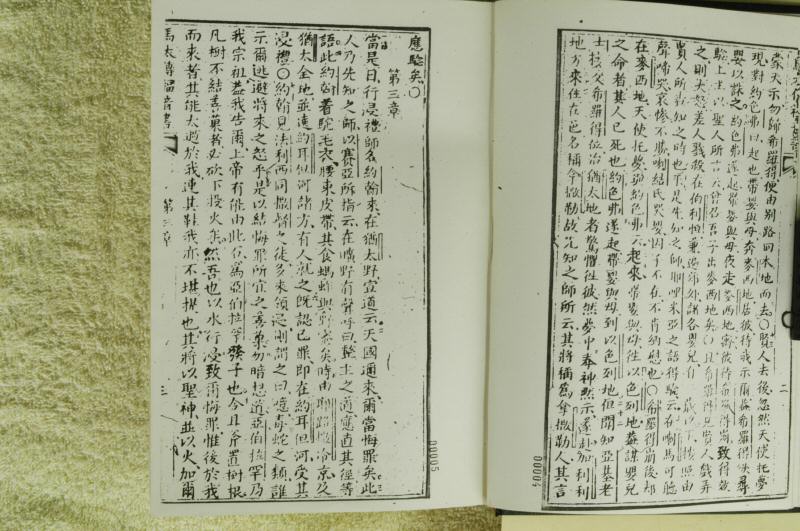 蒙天示勿歸希羅得便由別路回本地而去〇賢人去後忽然天使托夢
現對約色弗以起也帶嬰與母奔麥西地居彼待我示爾蓋希羅得俟尋
嬰以誅之約色弗遂起帶嬰與母夜走麥西地
驗上主以聖人所言云曾召吾子出麥西地矣〇且希羅得見賢人戲弄
之則大怒差人戮殺在伯利恒兼邊諸各嬰兒有
賢人所報知之時也於是先知之師耶哩米亞之語得驗云在喇馬可聽
聲啼哭哀慘不勝喇結氏哭嬰因子不在不肯納慰也〇希羅得崩後却
在麥西地天使托夢與約色弗云起來帶嬰與母往以色列地蓋謀嬰兒
之命者其人已死也約色弗遂起帶嬰與母到以色列地但聞知亞基老
士接父希羅得位治猶太地者驚懼往彼然夢中奉神默示遂
地方來住在邑名稱拿撒勒故先知之師所云其將稱為拿撒勒人其言
二
00004
應驗矣〇
第三章
當是日行浸禮師名約翰來在猶太野宣道云天國邇來爾當悔罪矣此
人乃先知之師以賽亞所指云在曠野有聲呼曰整主之道應直其徑等
語此約翰着駝毛衣腰束皮帶其食螞蚱與野蜜矣時由耶路撒冷京及
猶太全地並邊約耳但河諸方有人就之既認己罪即在約耳但河受其
浸禮〇約翰見法利西同撒督之徒多來領浸則謂之曰噫毒蛇之類誰
示爾逃避將來之怒乎是以結悔罪所宜之善菓勿暗想道亞伯拉罕乃
我宗祖蓋我告爾上帝有能由此石為亞伯拉罕發子也今且斧置樹根
凡樹不結善菓者必砍下投火矣然吾也以水行浸致爾悔罪惟後於我
而來者其能大過於我連其鞋我亦不堪提也其將以聖神並以火加爾
馬太傳福音書
第三章
三
00005